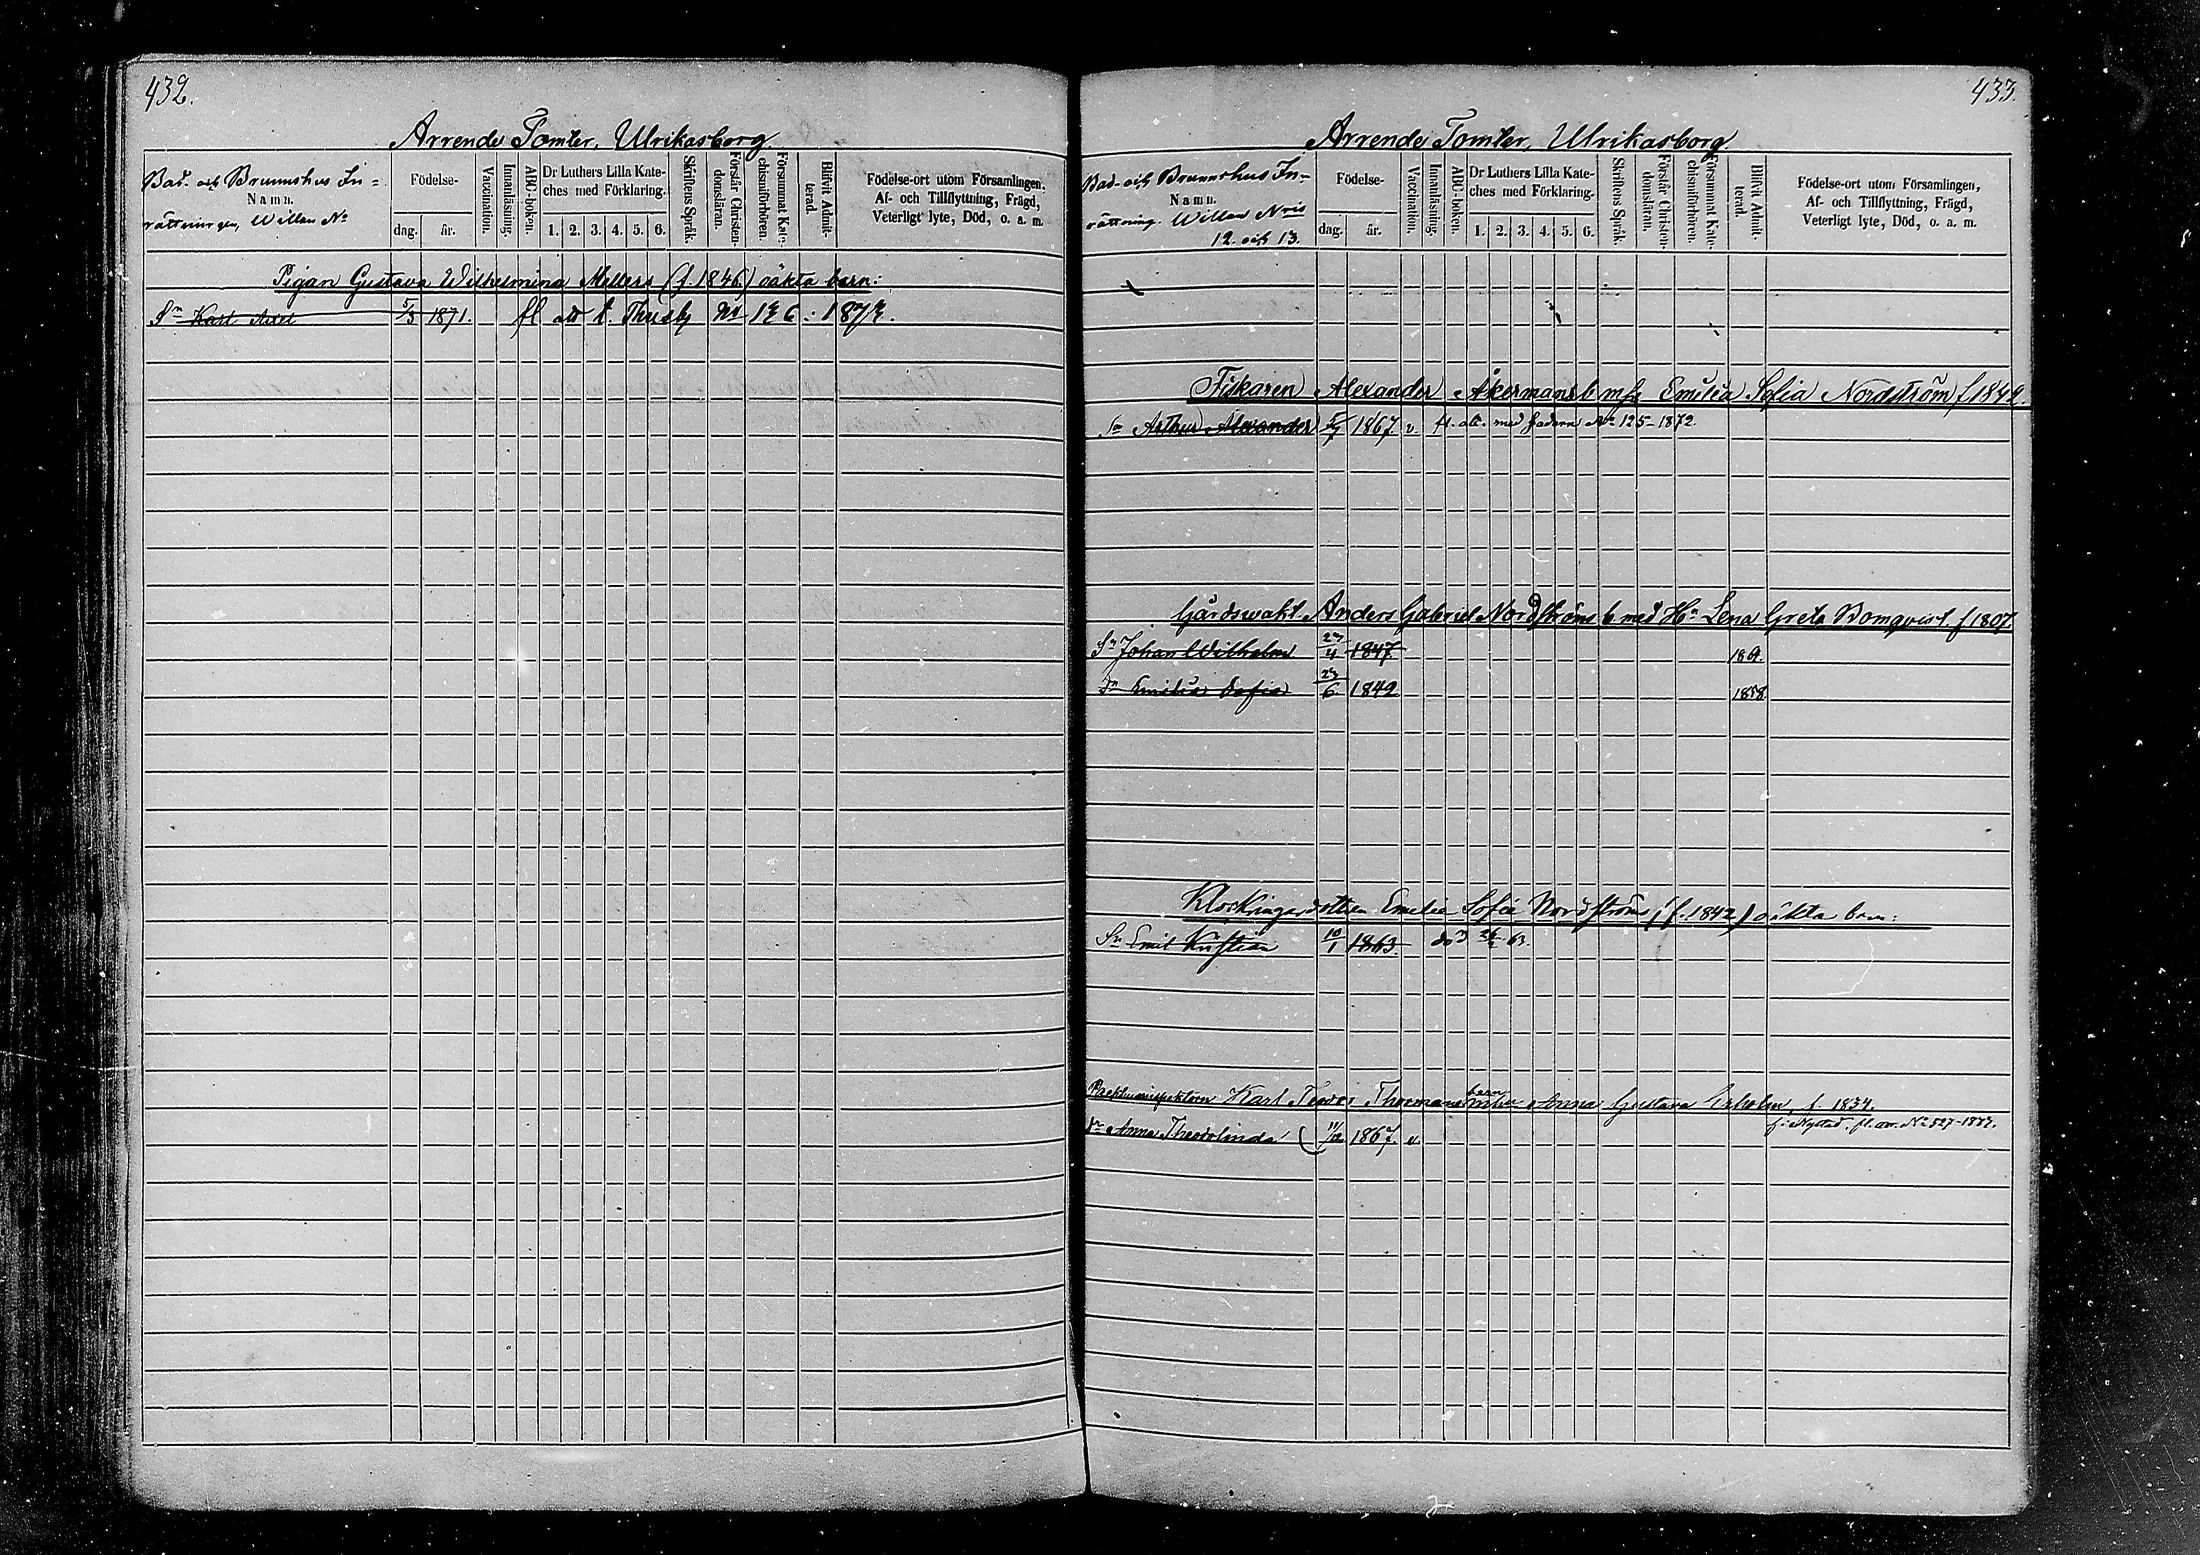 432.
Arrende Tomter, Ulrikasborg
Bad- och Brunnshus In=
Namn.
rättningen, Willan No
Födelse-
dag.
år.
Vaccination.
Innanläsning.
ABC-boken.
Dr Luthers Lilla Kate-
ches med Förklaring.
1. 2. 3. 4. 5. 6.
Skriftens Språk.
Förstår Christen-
domsläran.
Försummat Kate-
chismiförhören.
Blifvit Admit-
terad.
Födelse-ort utom Församlingen,
Af- och Tillflyttning, Frägd,
Veterligt lyte, Död, o. a. m.
Pigan Gustava Wilhelmina Mellers (f. 1846.) oäkta barn:
Sn Karl Axel 5/3 1871. fl att t. Thusby No 126. 1872.
433.
Arrende Tomter, Ulrikasborg
Bad- och Brunnshus In-
Namn.
rättning. Willan Nris
12. och 13.
Födelse-
dag.
år.
Vaccination.
Innanläsning.
ABC-boken.
Dr Luthers Lilla Kate-
ches med Förklaring.
1. 2. 3. 4. 5. 6.
Skriftens Språk.
Förstår Christen-
domsläran.
Försummat Kate-
chismiförhören.
Blifvit Admit-
terad.
Födelse-ort utom Församlingen,
Af- och Tillflyttning, Frägd,
Veterligt lyte, Död, o. a. m.
Fiskaren Alexander Åkermans b. m. h. Emilia Sofia Nordström f 1842.
Sn Arthur Alexander 1867. v. fl. att. med fadern No 125-1872.
Gårdswakt. Anders Gabriel Nordströms b med Hu Lena Greta Bomqvist f 1807
Sn Johan Wilhelm 23/4 1847. 186
Dr Emilia Sofia 23/6 1842 1858.
Emelia Sofia Nordström, (f. 1842) oäkta barn:
Sn Emil Kristian 10/1 1863. död 63.
Karl Teodor Thoermans barn Anna Gustava f. 1834.
Dr Anna Theodolinda 11/12 1867. v. f. i Nystad, fl. No 527-1872.